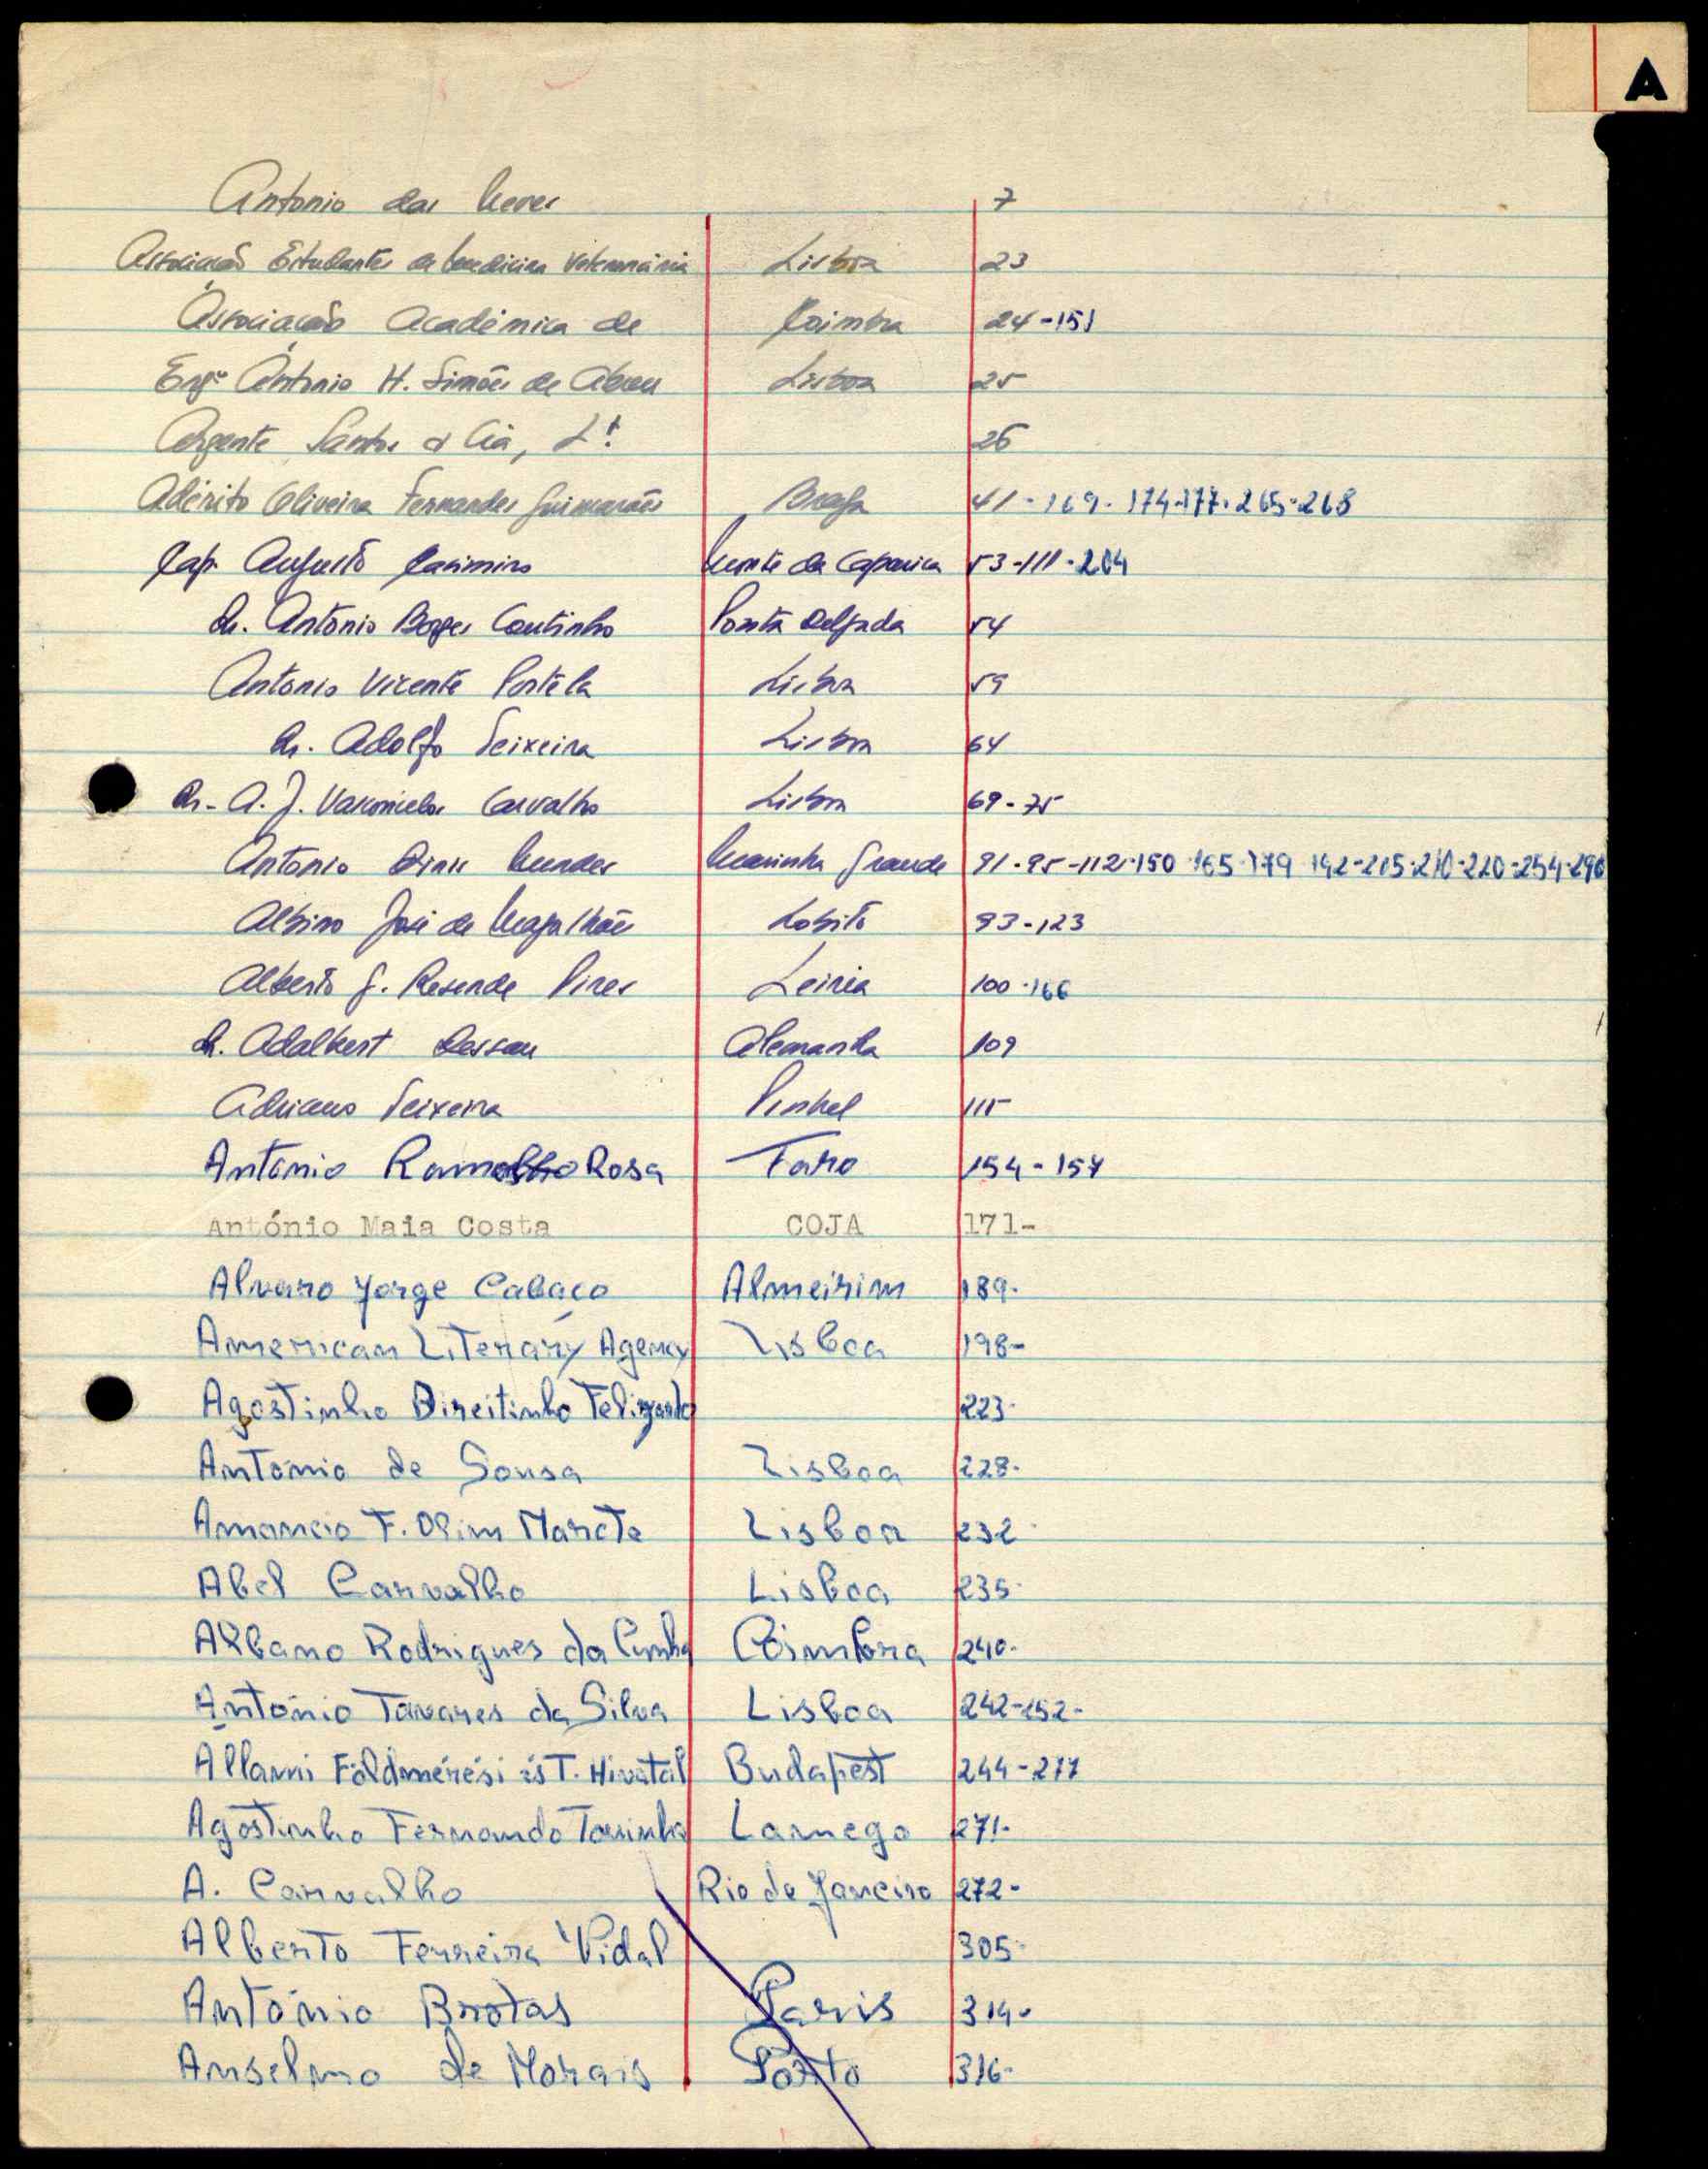 A
Antonio das Neves 7
Associação Estudantes de Medicina Veterinária Lisboa 23
Associação Académica de Coimbra 24-151
Engº António H. Simões de Abreu Lisboa 25
Argente Santos & Cia, Lt. 26
Adérito Oliveira Fernandes Guimarães Braga 41-169-174-177-265-268
Cap. Augusto Casimiro Monte da Caparica 53-111-204
Dr. Antonio Borges Coutinho Ponta Delgada 54
Antonio Vicente Portela Lisboa 59
Dr. Adolfo Teixeira Lisboa 64
Dr. A. J. Vasconcelos Carvalho Lisboa 69-75
Antonio Diniz Mendes Marinha Grande 91-95-112-150-165-179 192-205-210-220-254-290
Albino José de Magalhães Lobito 93-123
Alberto G. Resende Pires Leiria 100-166
Dr. Adalbert Dessau Alemanha 109
Adriano Teixeira Pinhel 115
António Ramos Rosa Faro 154-157
António Maia Costa COJA 171-
Alvaro Jorge Cabaço Almeirim 189-
American Literary Agency Lisboa 198-
Agostinho Direitinho Felizardo 223-
António de Sousa Lisboa 228-
Amancio F. Olim Marote Lisboa 232
Abel Carvalho Lisboa 235-
Albano Rodrigues da Cunha Coimbra 240-
António Tavares da Silva Lisboa 242-252-
Allami Földmérési és T. Hivatal Budapest 244-277
Agostinho Fernando Tarrinha Lamego 271-
A. Carvalho Rio de Janeiro 272-
Alberto Ferreira Vidal 305-
António Brotas Paris 314-
Anselmo de Morais Porto 316-